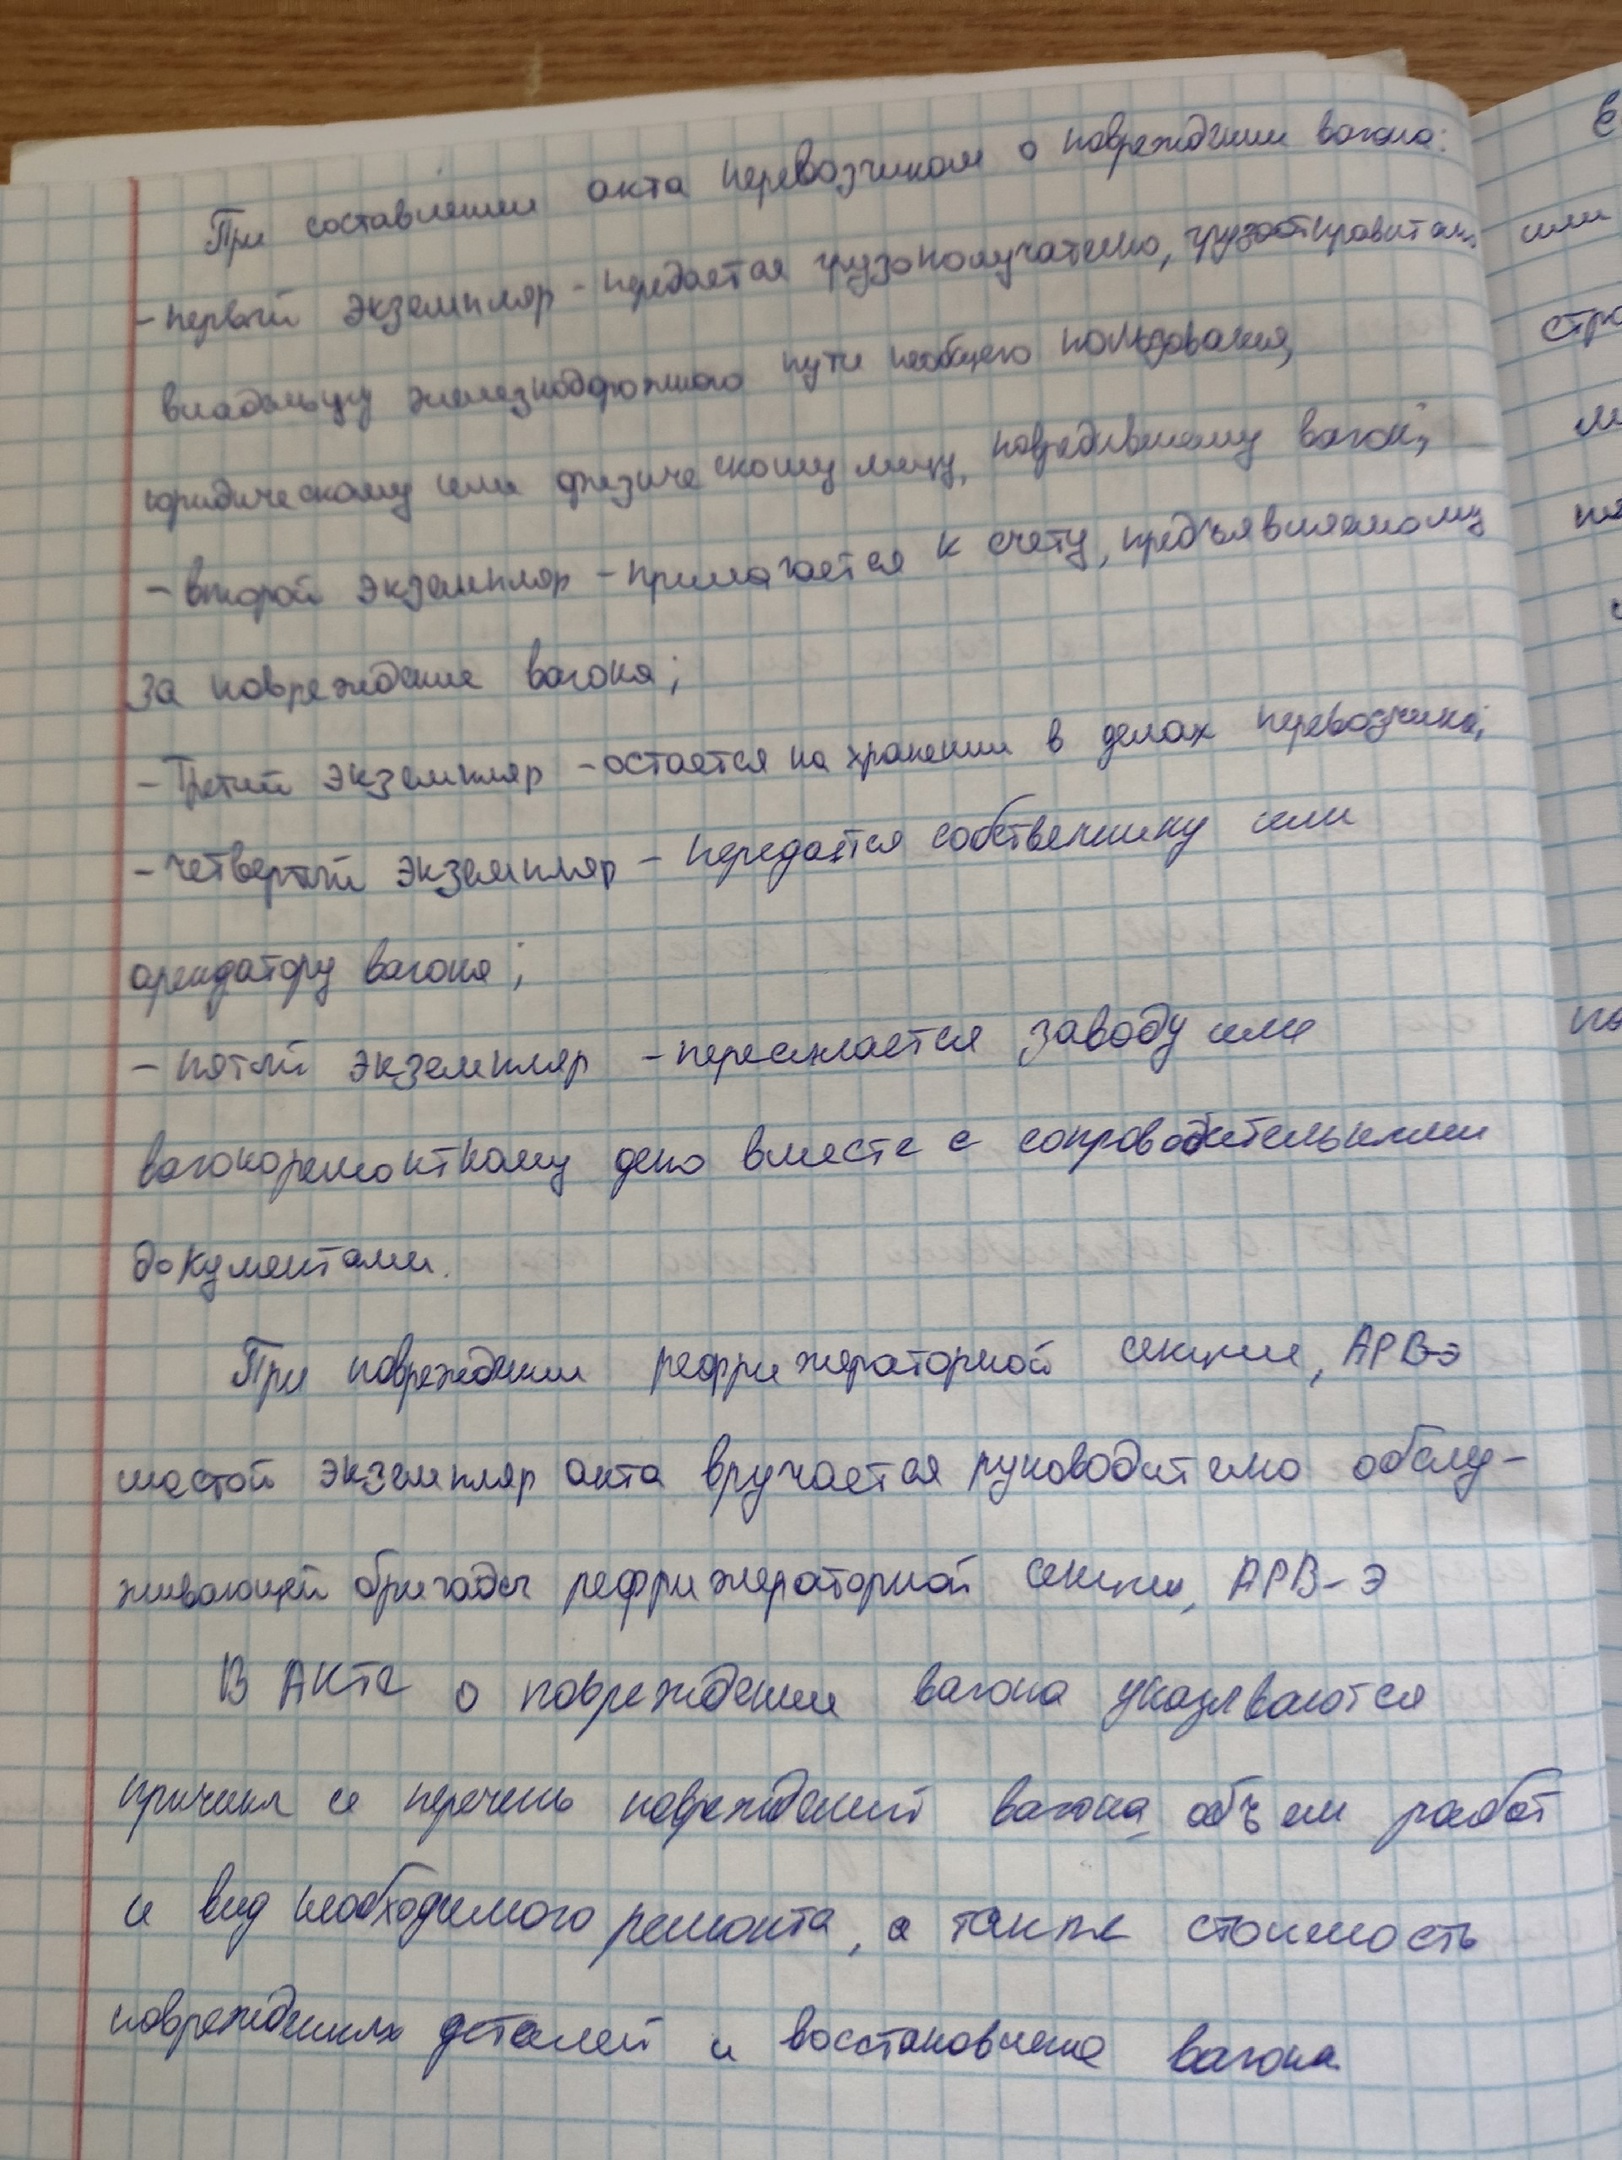 При составлении акта перевозчиком о повреждении вагона:
- первый экземпляр - передается грузополучателю, грузоотправителю,
владельцу железнодорожного пути необщего пользования,
юридическому или физическому лицу, повредившему вагон;
- второй экземпляр - прилагается к счету, предъявляемому
за повреждение вагона;
- Третий экземпляр - остается на хранении в делах перевозчика;
- четвертый экземпляр - передается собственнику или
арендатору вагона;
- пятый экземпляр - пересылается заводу или
вагоноремонтному депо вместе с сопроводительными
документами.
При повреждении рефрижераторной секции, АРВ-Э
шестой экземпляр акта вручается руководителю обслу-
живающей бригады рефрижераторной секции, АРВ-Э
В Акте о повреждении вагона указываются
причины и перечень повреждений вагона, объем работ
и вид необходимого ремонта, а также стоимость
поврежденных деталей и восстановления вагона
или